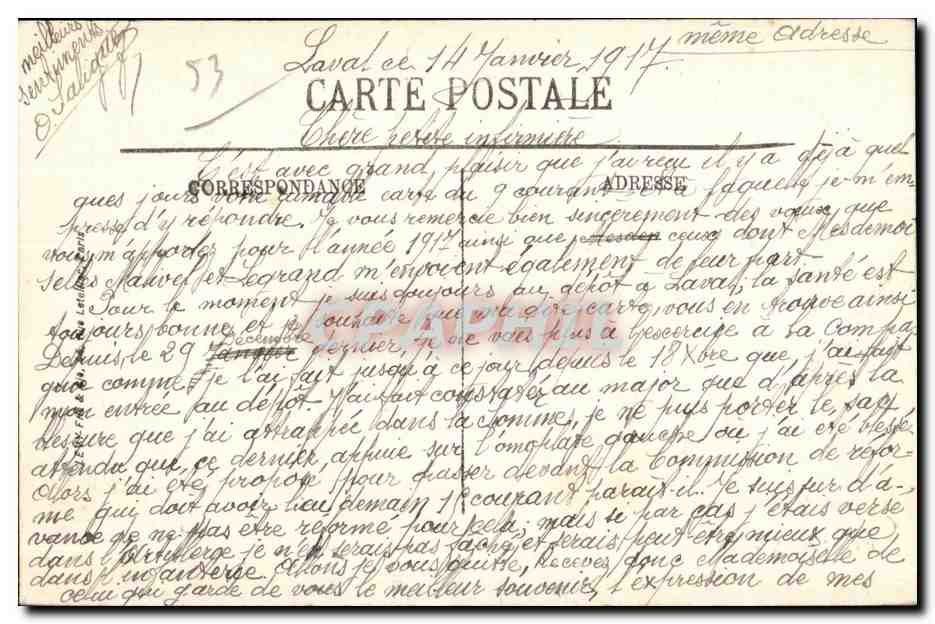 meilleurs
sentiments
même Adresse
53
Laval ce 14 Janvier 1917.
CARTE POSTALE
Chère petite infirmière
C'est avec grand plaisir que j'ai reçu il y a déjà quel
CORRESPONDANCE
ADRESSE
ques jours votre aimable carte du 9 courant et à laquelle je m'em-
presse d'y répondre. Je vous remercie bien sincèrement des vœux que
vous m'apportez pour l'année 1917 ainsi que ceux dont Mesdemoi
selles et Legrand m'envoient également de leur part
Pour le moment je suis toujours au dépôt à Laval, la santé est
toujours bonne et je souhaite que ma carte vous en trouve ainsi
Depuis le 29 Décembre dernier, je ne vais plus à l'exercice à la Compa-
gnie comme je l'ai fait jusqu'à ce jour depuis le 18 Xbre que j'ai fait
mon entrée au dépôt. J'ai fait constater au major que d'après la
blessure que j'ai attrappée dans la Somme, je ne puis porter le sac,
attendu que ce dernier appuie sur l'omoplate gauche où j'ai été blessé
Alors j'ai été proposé pour passer devant la Commission de réfor-
me qui doit avoir lieu demain 15 courant paraît-il. Je suis sûr d'a-
vance de ne pas être réformé pour cela, mais si par cas j'étais versé
dans l'Artillerie je n'en serais pas fâché et serais peut-être mieux que
dans l'infanterie. Allons je vous quitte, Recevez donc Mademoiselle de
celui qui garde de vous le meilleur souvenir, l'expression de mes